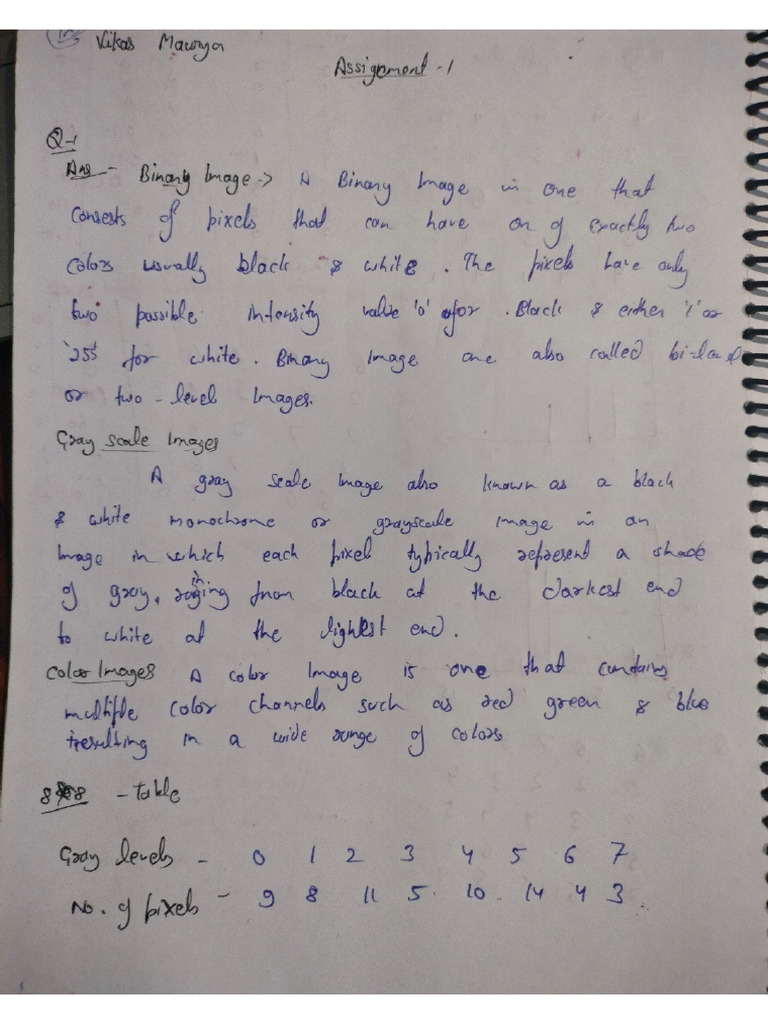 Vikas Maurya
Assignment - 1
Q-1
Ans - Binary Image -> A Binary Image is one that
consests of pixels that can have on of exactly two
colors usually black & white. The pixels have only
two possible intensity value '0' for. Black & either '1' or
'255' for white. Binary Image are also called bi-level
or two-level Images.
Gray scale Images
A gray scale Image also known as a black
& white monochrome or grayscale Image is an
Image in which each pixel typically represent a shade
of gray, raging from black at the darkest end
to white at the lightest end.
Color Images A color Image is one that contains
multiple color channels such as red green & blue
resulting in a wide range of colors
8*8 - table
Gray levels - 0 1 2 3 4 5 6 7
No. of pixels - 9 8 11 5. 10. 14 4 3.